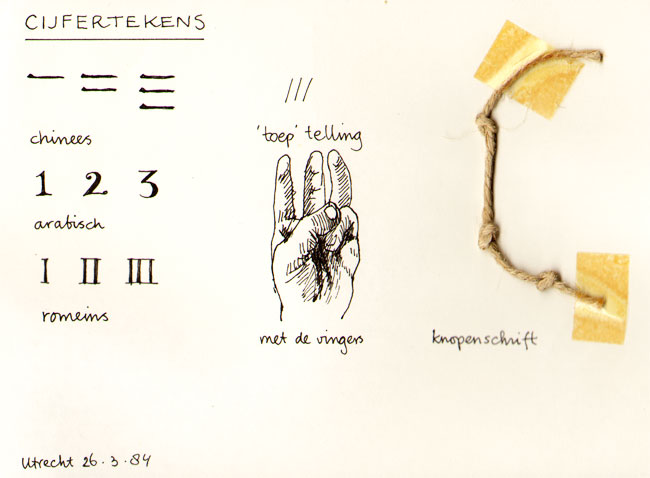 CIJFERTEKENS
一 二 三
chinees
1 2 3
arabisch
I II III
romeins
///
'toep' telling
met de vingers
knopenschrift
Utrecht 26.3.84